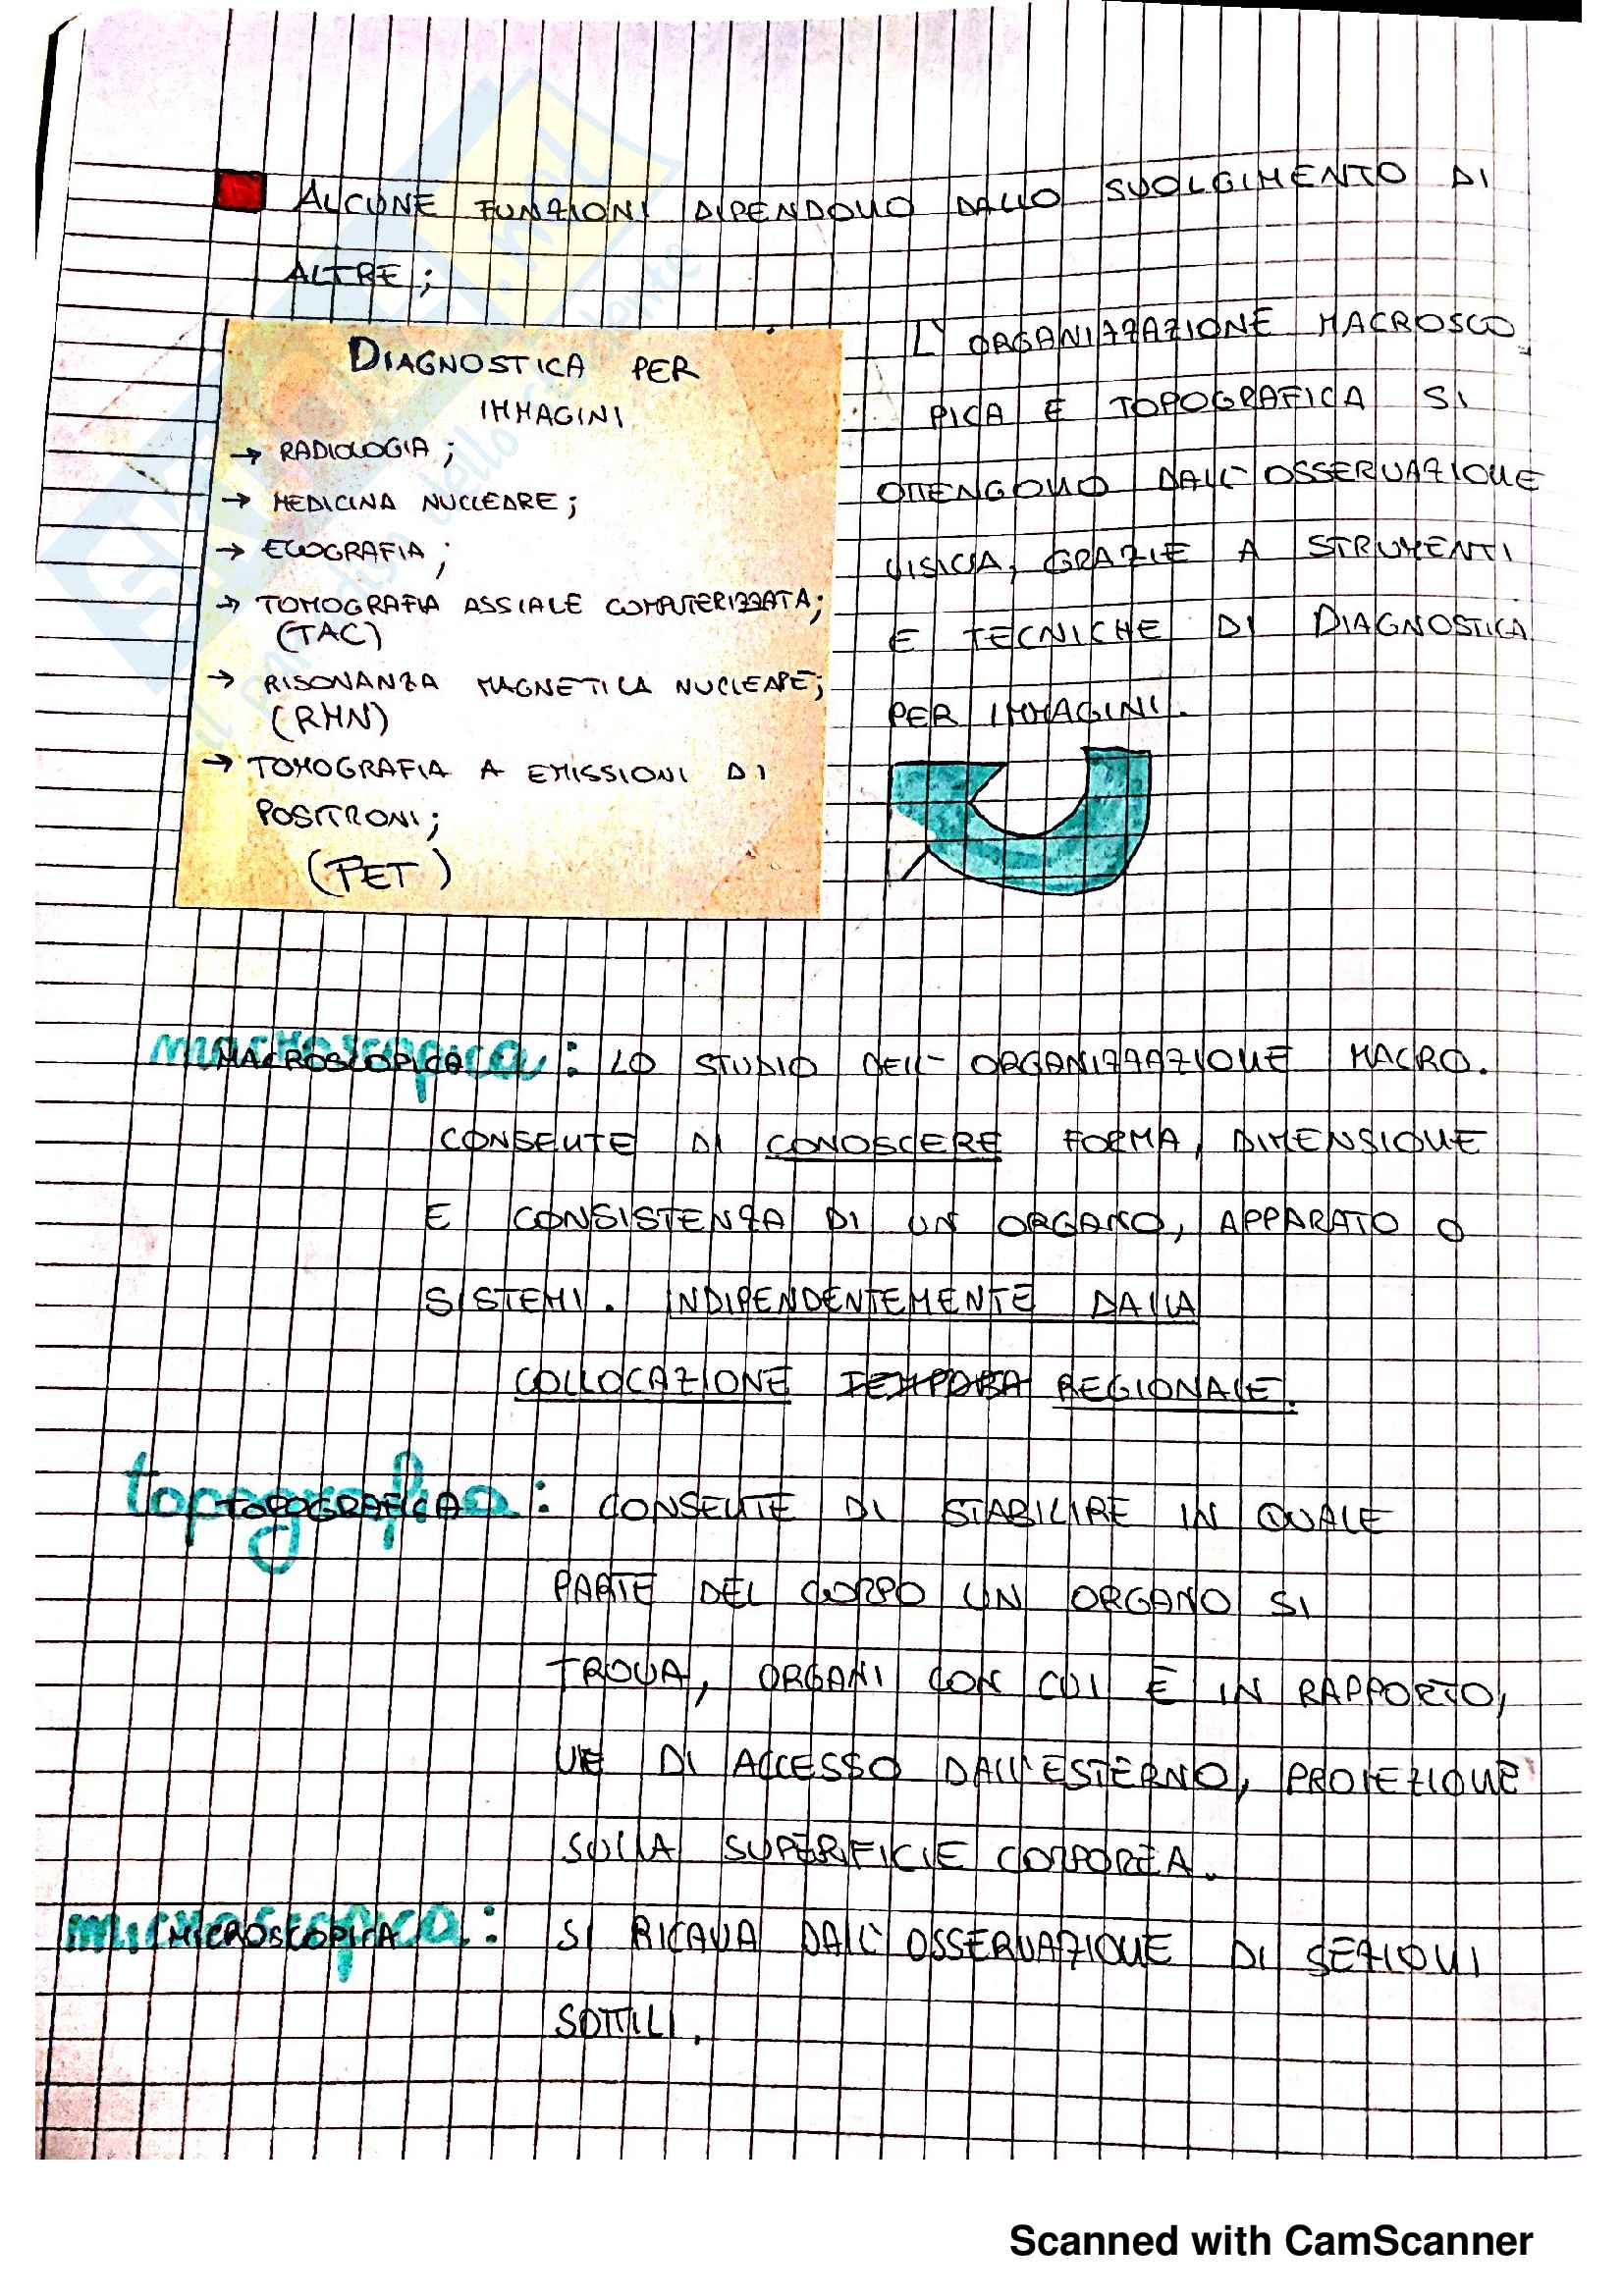 ALCUNE FUNZIONI DIPENDONO DALLO SVOLGIMENTO DI
ALTRE;
DIAGNOSTICA PER
IMMAGINI
→ RADIOLOGIA;
→ MEDICINA NUCLEARE;
→ ECOGRAFIA;
→ TOMOGRAFIA ASSIALE COMPUTERIZZATA;
(TAC)
→ RISONANZA MAGNETICA NUCLEARE;
(RMN)
→ TOMOGRAFIA A EMISSIONI DI
POSITRONI;
(PET)
L'ORGANIZZAZIONE MACROSCO
PICA E TOPOGRAFICA SI
OTTENGONO DALL'OSSERVAZIONE
VISIVA, GRAZIE A STRUMENTI
E TECNICHE DI DIAGNOSTICA
PER IMMAGINI.
MACROSCOPICA: LO STUDIO DELL'ORGANIZZAZIONE MACRO.
CONSENTE DI CONOSCERE FORMA, DIMENSIONE
E CONSISTENZA DI UN ORGANO, APPARATO O
SISTEMI. INDIPENDENTEMENTE DALLA
COLLOCAZIONE REGIONALE.
TOPOGRAFICA: CONSENTE DI STABILIRE IN QUALE
PARTE DEL CORPO UN ORGANO SI
TROVA, ORGANI CON CUI E IN RAPPORTO,
VIE DI ACCESSO DALL'ESTERNO, PROIEZIONE
SULLA SUPERFICIE CORPOREA.
MICROSCOPICA: SI RICAVA DALL'OSSERVAZIONE DI SEZIONI
SOTTILI.
Scanned with CamScanner